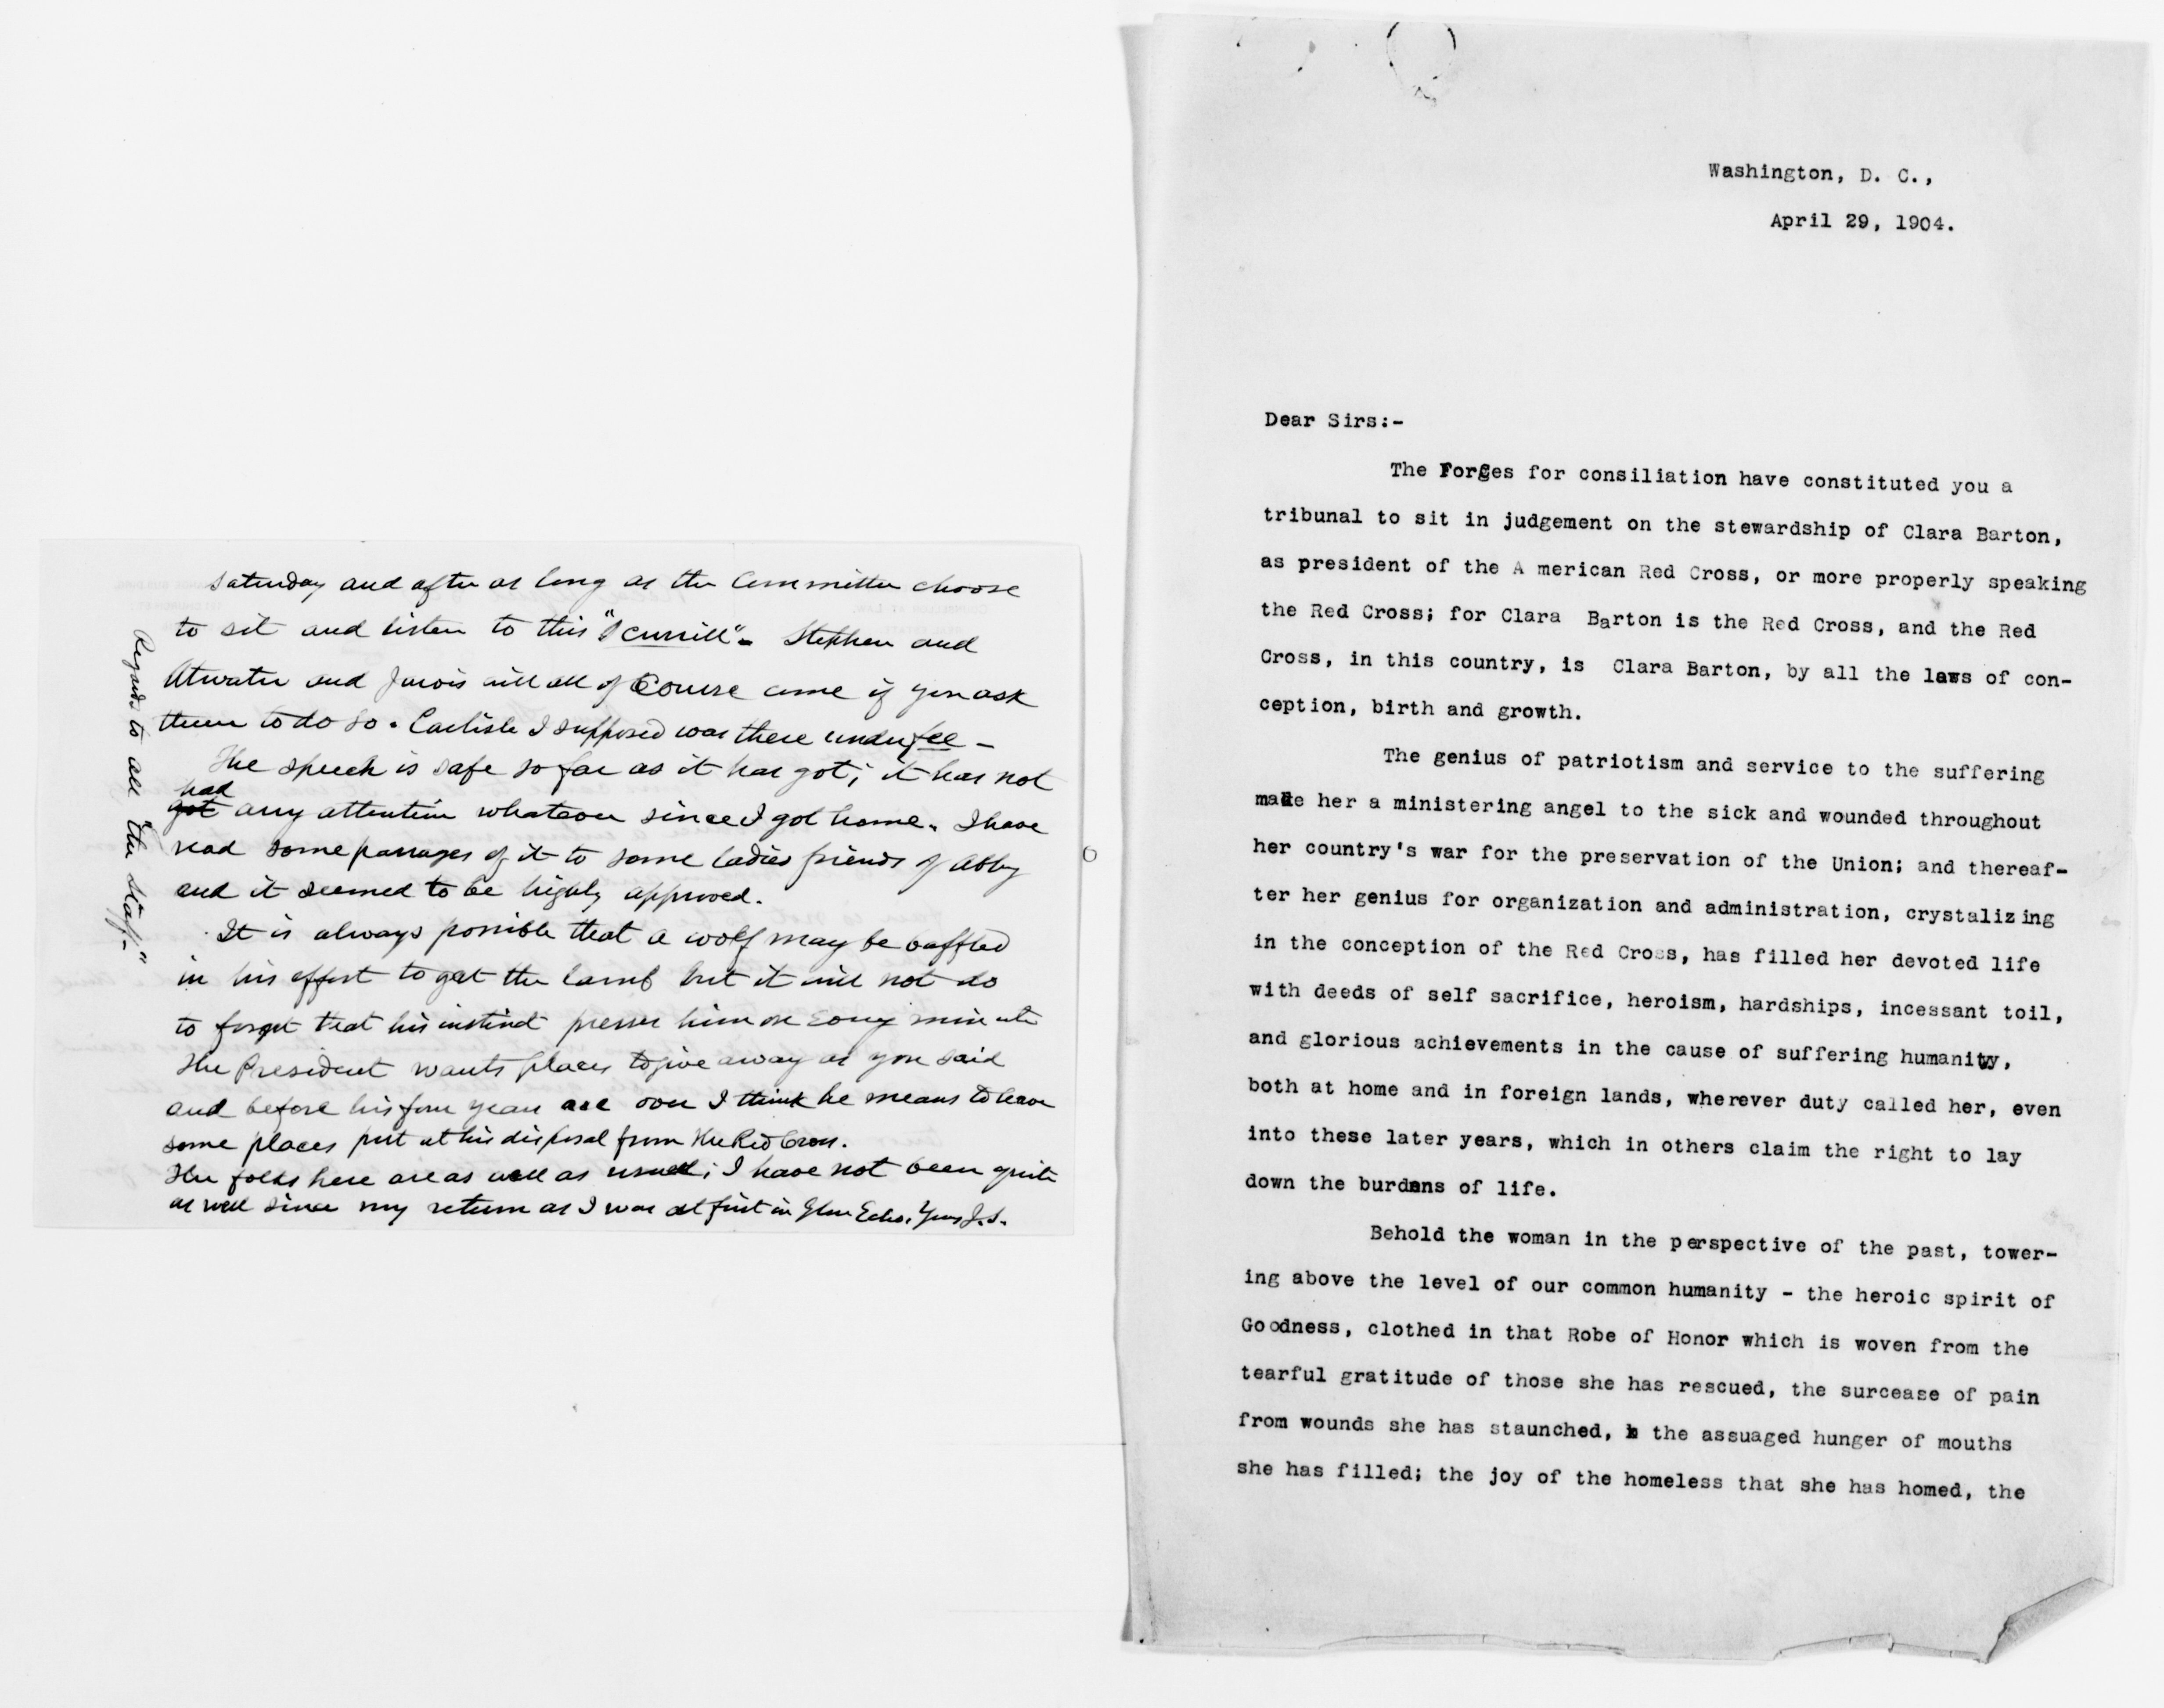 Saturday and after as long as the Committee choose
to sit and listen to this "Scurrill". Stephen and
Atwater and Jarvis will all of Course come if you ask
them to do so. Carlisle I supposed was there under fee —
The speech is safe so far as it has got; it has not
had
got any attention whatever since I got home. I have
read some passages of it to some ladies friends of Abby
and it seemed to be highly approved.
It is always possible that a wolf may be baffled
in his effort to get the lamb but it will not do
to forget that his instinct presses him on every minute
The President wants places to give away as you said
and before his four years are over I think he means to have
some places put at his disposal from the Red Cross.
The folks here are as well as usual; I have not been quite
as well since my return as I was at first in Glen Echo. Yours J.S.
Regards to all "the staff."
Washington, D. C.,
April 29, 1904.
Dear Sirs:-
The Forges for consiliation have constituted you a
tribunal to sit in judgement on the stewardship of Clara Barton,
as president of the A merican Red Cross, or more properly speaking
the Red Cross; for Clara Barton is the Red Cross, and the Red
Cross, in this country, is Clara Barton, by all the laws of con-
ception, birth and growth.
The genius of patriotism and service to the suffering
made her a ministering angel to the sick and wounded throughout
her country's war for the preservation of the Union; and thereaf-
ter her genius for organization and administration, crystalizing
in the conception of the Red Cross, has filled her devoted life
with deeds of self sacrifice, heroism, hardships, incessant toil,
and glorious achievements in the cause of suffering humanity,
both at home and in foreign lands, wherever duty called her, even
into these later years, which in others claim the right to lay
down the burdens of life.
Behold the woman in the perspective of the past, tower-
ing above the level of our common humanity - the heroic spirit of
Goodness, clothed in that Robe of Honor which is woven from the
tearful gratitude of those she has rescued, the surcease of pain
from wounds she has staunched, the assuaged hunger of mouths
she has filled; the joy of the homeless that she has homed, the